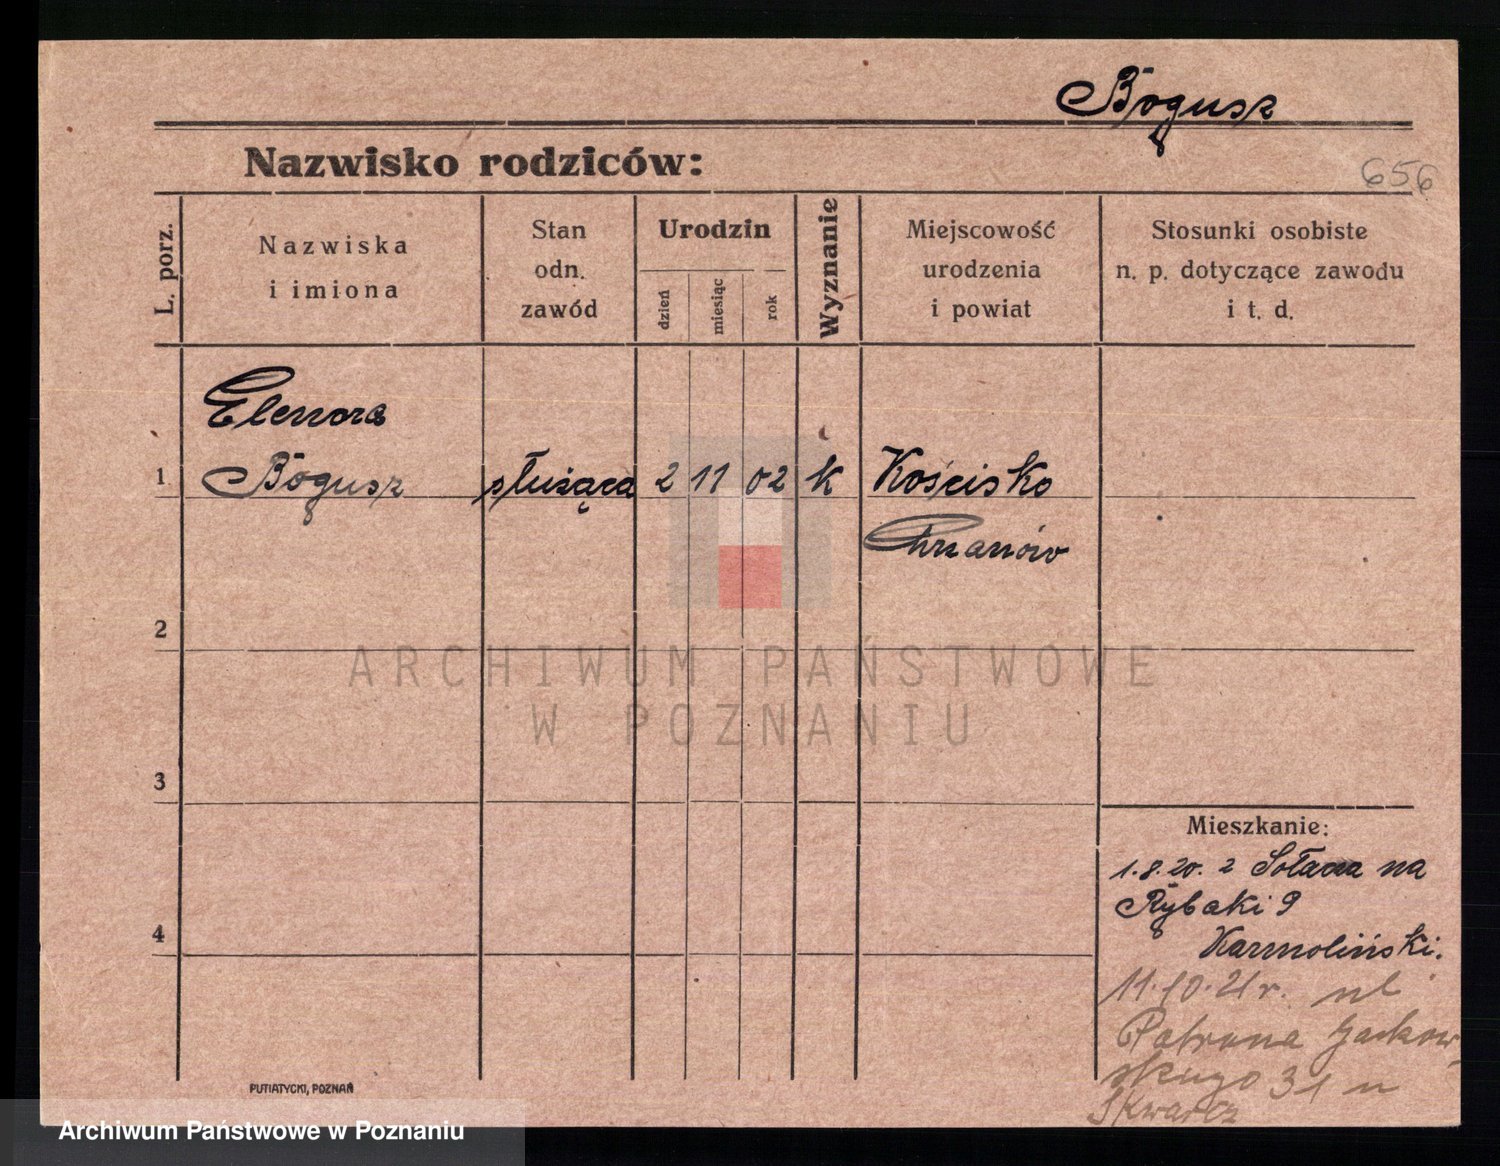 Bogusz
Nazwisko rodziców:
656
L. porz.
Nazwiska
i imiona
Stan
odn.
zawód
Urodzin
dzień
miesiąc
rok
Wyznanie
Miejscowość
urodzenia
i powiat
Stosunki osobiste
n. p. dotyczące zawodu
i t. d.
Elenora
1 Bogusz służąca 2 11 02 k Kościsko
Chrzanów
2
ARCHIWUM PAŃSTWOWE
W POZNANIU
3
Mieszkanie:
1.8.20. z Sołacza na
Rybaki 9
4
Karmoliński.
11.10.21 r. ul
Patrona Jackow-
skiego 31 u
Skwarcz
PUTIATYCKI, POZNAŃ
Archiwum Państwowe w Poznaniu